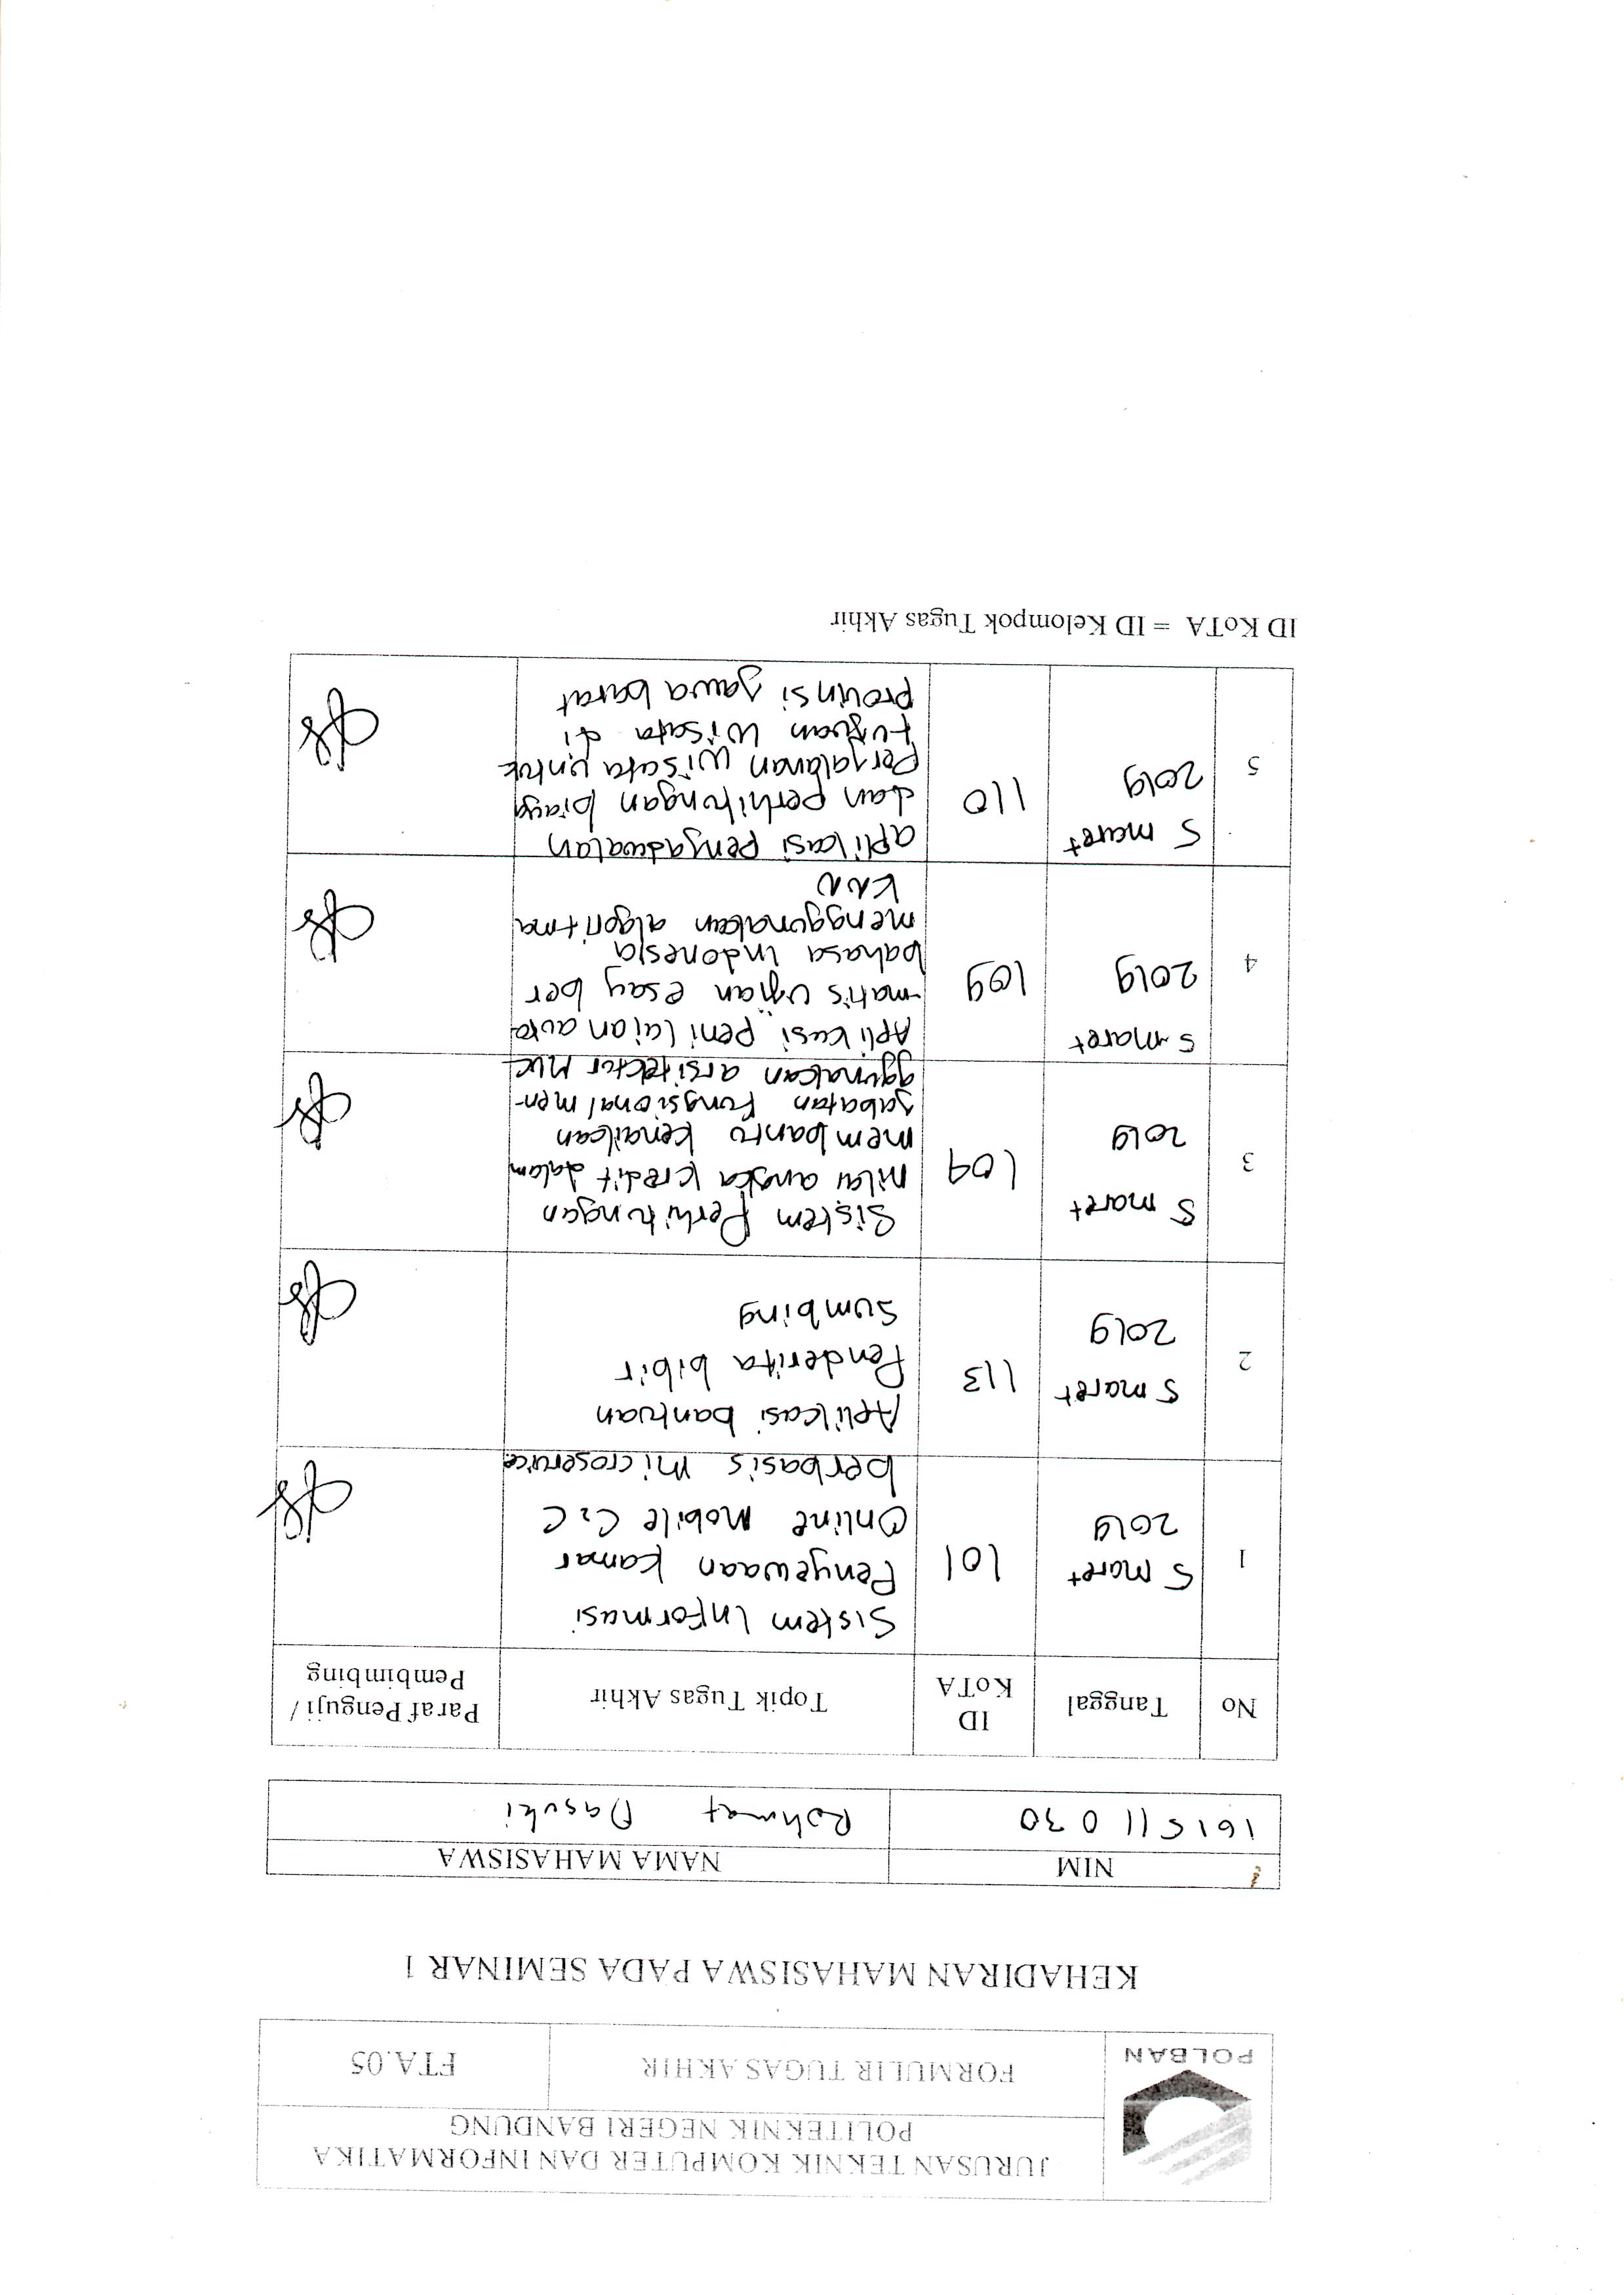 JURUSAN TEKNIK KOMPUTER DAN INFORMATIKA
POLITEKNIK NEGERI BANDUNG
POLBAN
FORMULIR TUGAS AKHIR
FTA.05
KEHADIRAN MAHASISWA PADA SEMINAR 1
NIM
NAMA MAHASISWA
161511030
Rohmat Dasuki
No
Tanggal
ID
KoTA
Topik Tugas Akhir
Paraf Penguji /
Pembimbing
1
5 maret
2019
101
Sistem Informasi
Penyewaan kamar
Online Mobile C2C
berbasis microservice
2
5 maret
2019
113
Aplikasi bantuan
Penderita bibir
Sumbing
3
5 maret
2019
109
Sistem Perhitungan
nilai angka kredit dalam
membantu kenaikan
jabatan fungsional men-
ggunakan arsitektur MVC
4
5 maret
2019
109
Aplikasi penilaian auto
-matis ujian esay ber
bahasa indonesia
menggunakan algoritma
KNN
5
5 maret
2019
110
aplikasi penjadwalan
dan perhitungan biaya
Perjalanan wisata untuk
tujuan wisata di
provinsi jawa barat
ID KoTA = ID Kelompok Tugas Akhir